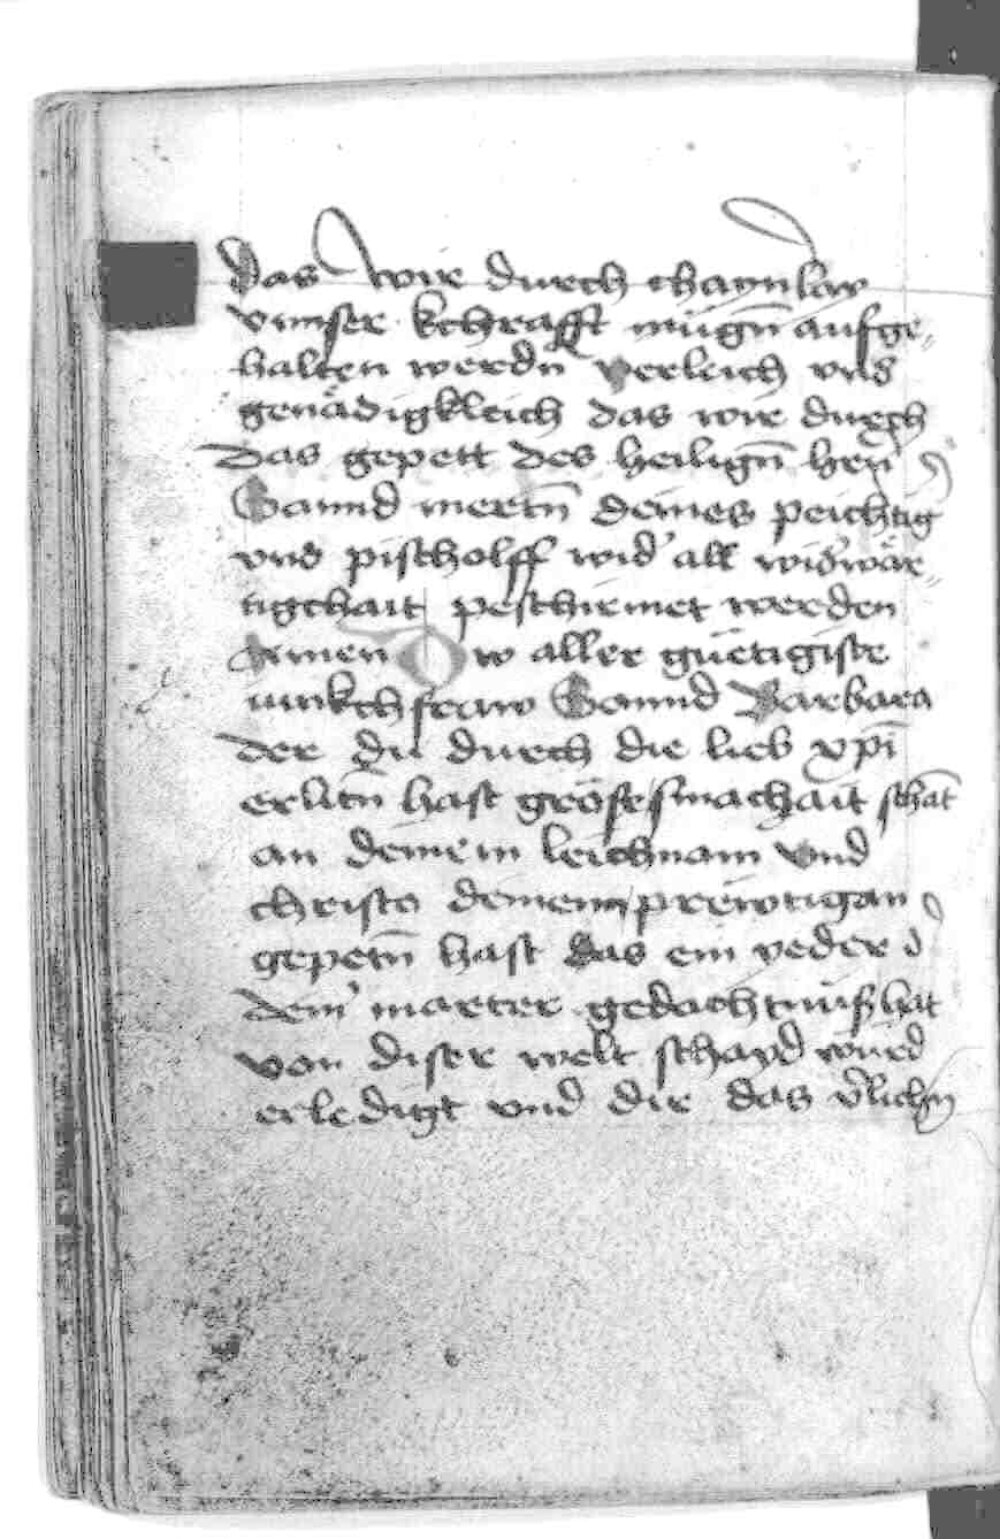 Das wir durch chaynlay
vnnser kchrafft mügn̄ aufge„
halten werdn̄ verleich vns
genädigkleich das wir durch
das gepett des heilign̄ hern̄
Sannd mertn̄ deines peichtig
vnd pischolff wid' all wid'wär„
tigchait peschirmet werden
Amen O w aller güetigiste
iunkchfraw Sannd Barbara
der du durch die lieb xp̄i
erlitn̄ hast gröse smachait
an deinem leichnam vnd
christo deinem prewtigan
gepetn̄ hast das ein yeder d
dein' marter gedachtnüß hat
von diser welt schayd würd
erledigt vnd dir das v'lichn̄